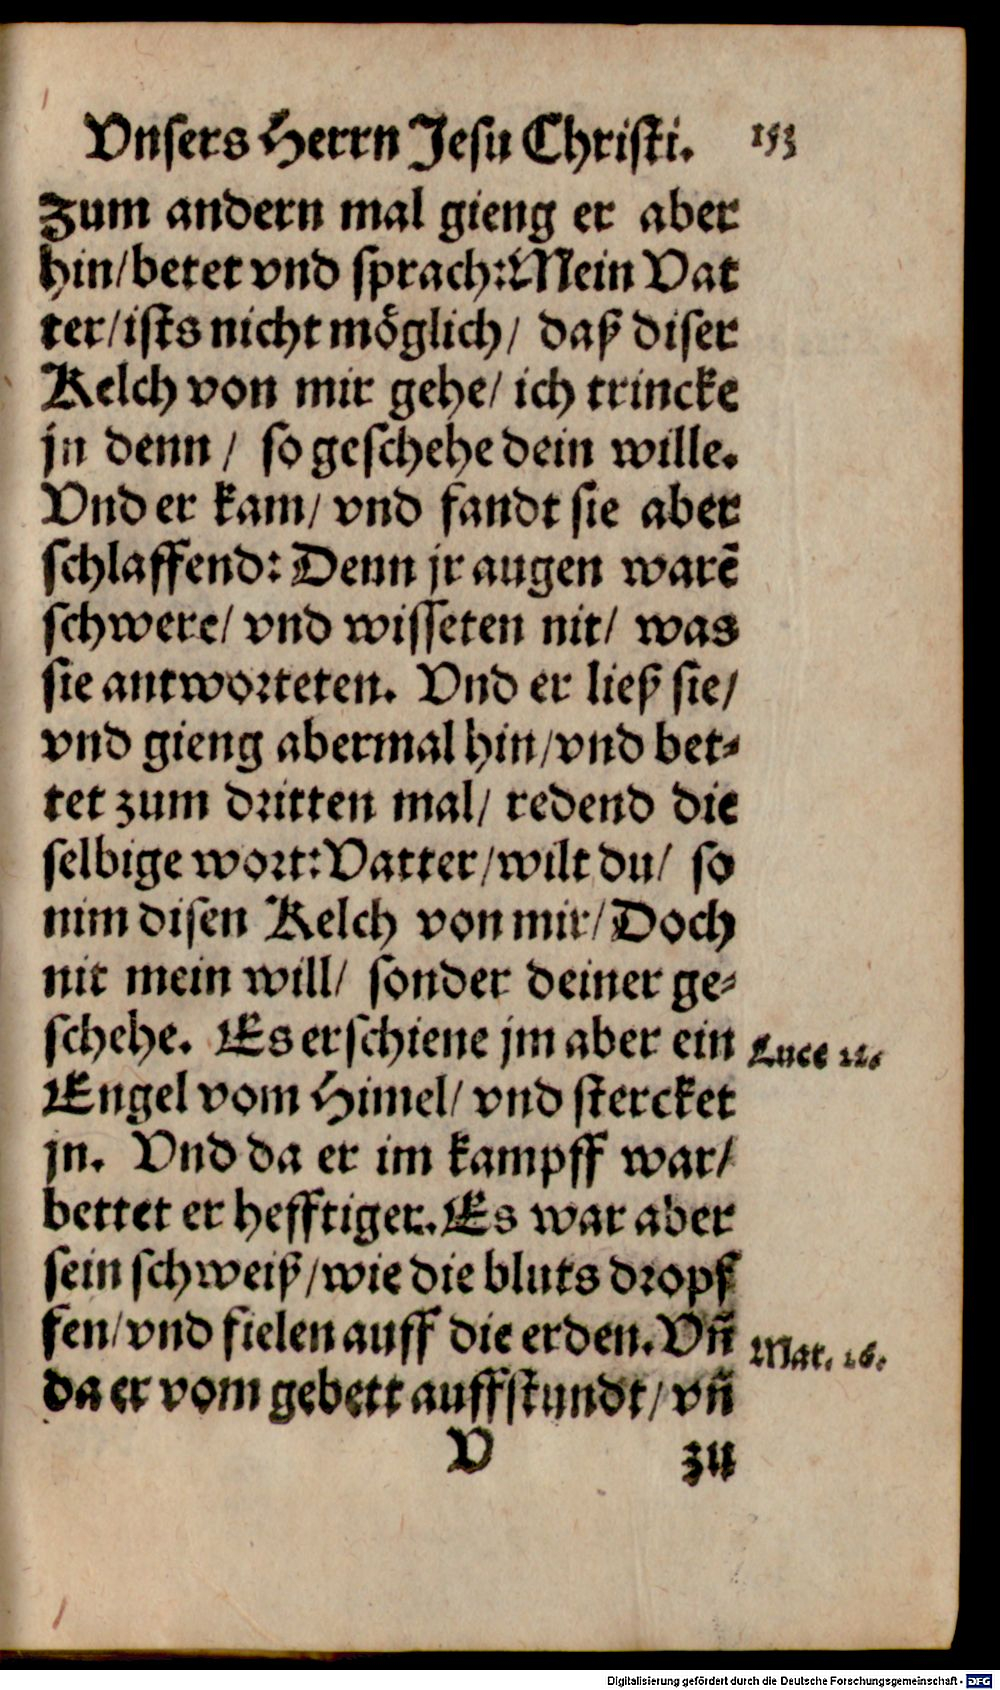 Vnsers Herrn Jesu Christi. 153
Zum andern mal gieng er aber
hin/betet vnd sprach: Mein Vat
ter/ists nicht möglich/ daß diser
Kelch von mir gehe/ ich trincke
jn denn / so geschehe dein wille.
Vnd er kam/ vnd fandt sie aber
schlaffend: Denn jr augen warẽ
schwere/ vnd wisseten nit/ was
sie antworteten. Vnd er ließ sie/
vnd gieng abermal hin/vnd bet-
tet zum dritten mal/ redend die
selbige wort: Vatter/wilt du/ so
nim disen Kelch von mir/Doch
nit mein will/ sonder deiner ge-
schehe. Es erschiene jm aber ein Luce 22.
Engel vom Himel/ vnd stercket
jn. Vnd da er im kampff war/
bettet er hefftiger. Es war aber
sein schweiß/wie die bluts dropf
fen/vnd fielen auff die erden. Vñ Mat. 26.
da er vom gebett auffstundt/ vñ
V zu
Digitalisierung gefördert durch die Deutsche Forschungsgemeinschaft - DFG